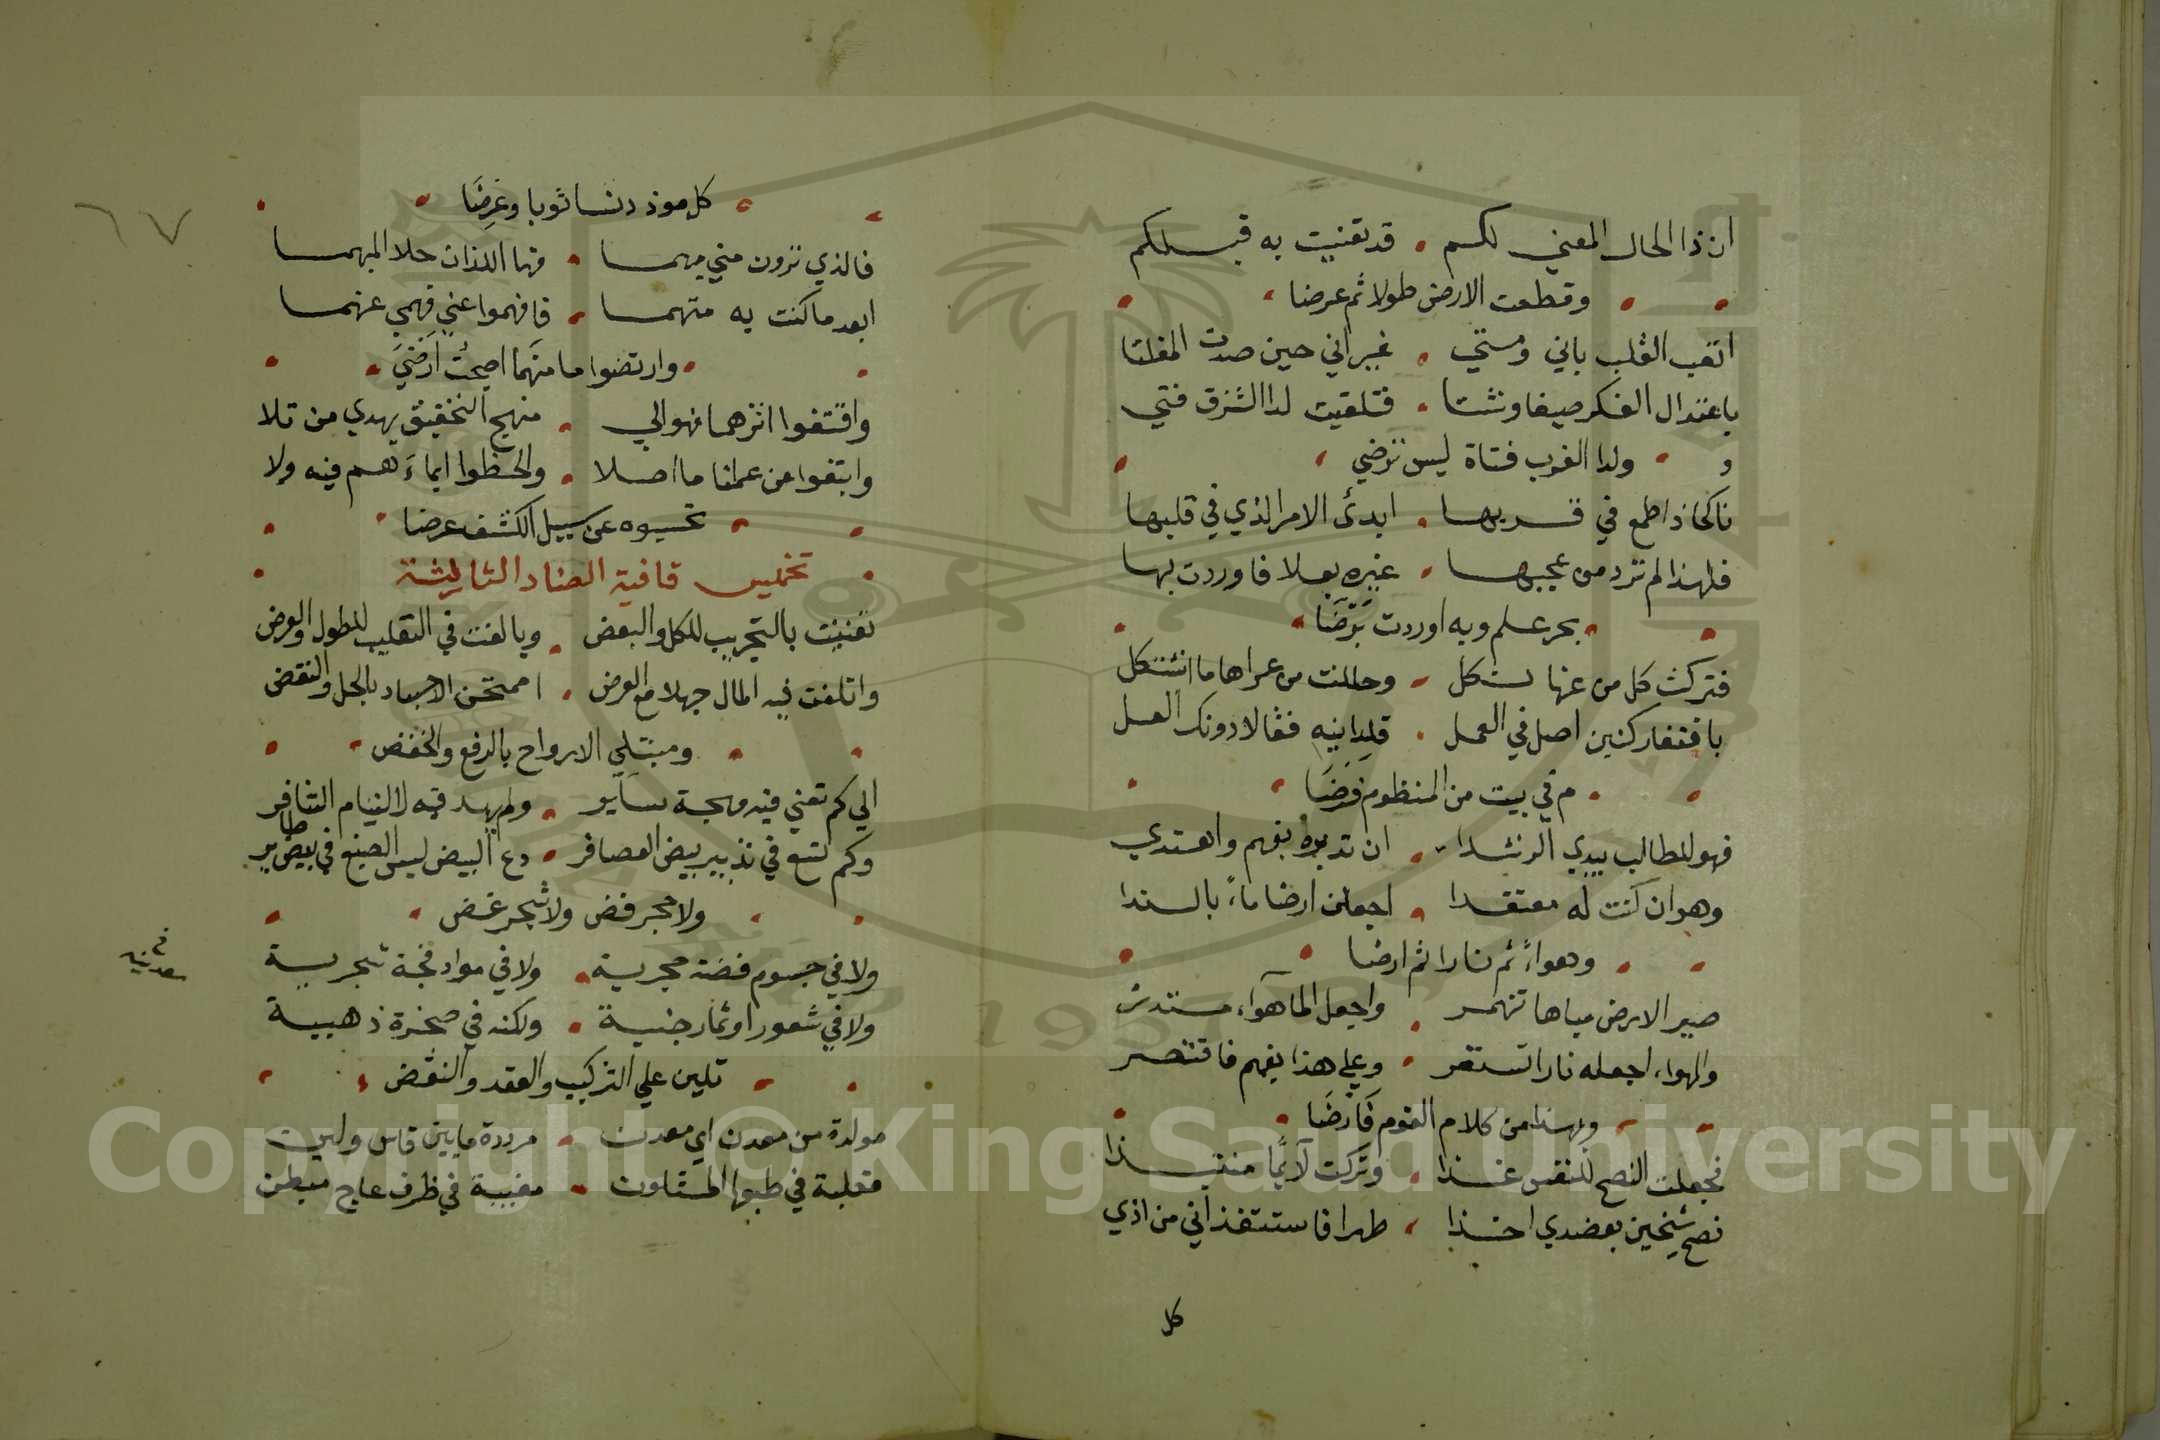 ان ذا الحال المعني لكم قد تعنيت به قبلكم
وقطعت الارض طولا ثم عرضا
اتعب القلب باني ومتي غير اني حين صدت المفلتا
باعتدال الفكر صيفا وشتا فتلقيت لدا الشرق فتي
ولدا الغرب فتاة ليس ترضي
ناكحا ذا طمع في قربها ابدئ الامر الذي في قلبها
فلهذا لم ترد من عجبها غيره بعلا فاوردت بها
بحر علم وبه اوردت برضا
فتركت كل من عنها نكل وحللت من عراها ما اشتكل
باقتفا ركنين اصل في العمل قلدانيه فقالا دونك العمل
م في بيت من المنظوم فرضا
فهو للطالب يبدي الرشدا ان تدبره بفهم واهتدي
وهو ان كنت له معتقدا اجعلن ارضا ماء بالندا
وهواء ثم نارا ثم ارضا
صير الارض مياها تنهمر واجعل الما هواء مستدر
والهواء اجعله نارا تستعر وعلي هذا بفهم فاقتصر
وبهذا من كلام القوم فارضا
فجعلت النصح للنفس غذا وتركت لايما منتبذا
نصح شيخين بعضدي اخذا طهرا فاستنقذاني من اذي
كل
٦٧
كل موذ دنسا ثوبا وعرضا
فالذي ترون مني مبهما فهما اللذان حلا المبهما
ابعد ما كنت به متهما فافهموا عني فهمي عنهما
وارتضوا ما منهما اصبحت ارضي
واقتفوا اثرهما فهو الي منهج التحقيق يهدي من تلا
وابتغوا من عملنا ما اصلا والحظوا ايماءهم فيه ولا
تحسبوه عن سبيل الكشف عرضا
تخميس قافية الضاد الثالثة
تعنيت بالتجريب للكل والبعض وبالغت في التقليب للطول والعرض
واتلفت فيه المال جهلا مع العرض اممتحن الاجساد بالحل والنقض
ومبتلي الارواح بالرفع والخفض
الي كم تعني فيه مهجة ساير ولم يهد فيه لالتيام التنافر
وكم تسع في تدبير بيض العصافر دع البيض ليس الصبغ في بيض طاير
ولا حجر فض ولا شجر غض
ولا في جسوم فضة حجرية ولا في مواد فجة شجرية
ولا في شعور او ثمار جنية ولكنه في صخرة ذهبية
تلين علي التركيب والعقد والنقض
مولدة من معدن اي معدن مرددة ما بين قاس ولين
مقلبة في طبعها المتلون مغيبة في ظرف عاج مبطن